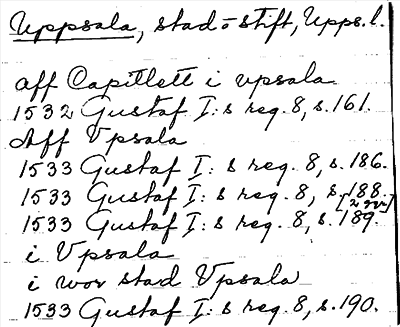 Uppsala, stad o stift, Upps. l.
aff Capittlett i vpsala
1532 Gustaf I:s reg. 8, s. 161.
Aff Vpsala
1533 Gustaf I:s reg. 8, s. 186.
1533 Gustaf I:s reg. 8, s. 188.
[2 ggr]
1533 Gustaf I:s reg. 8, s. 189.
i Vpsala
i wor stad Vpsala
1533 Gustaf I:s reg. 8, s. 190.